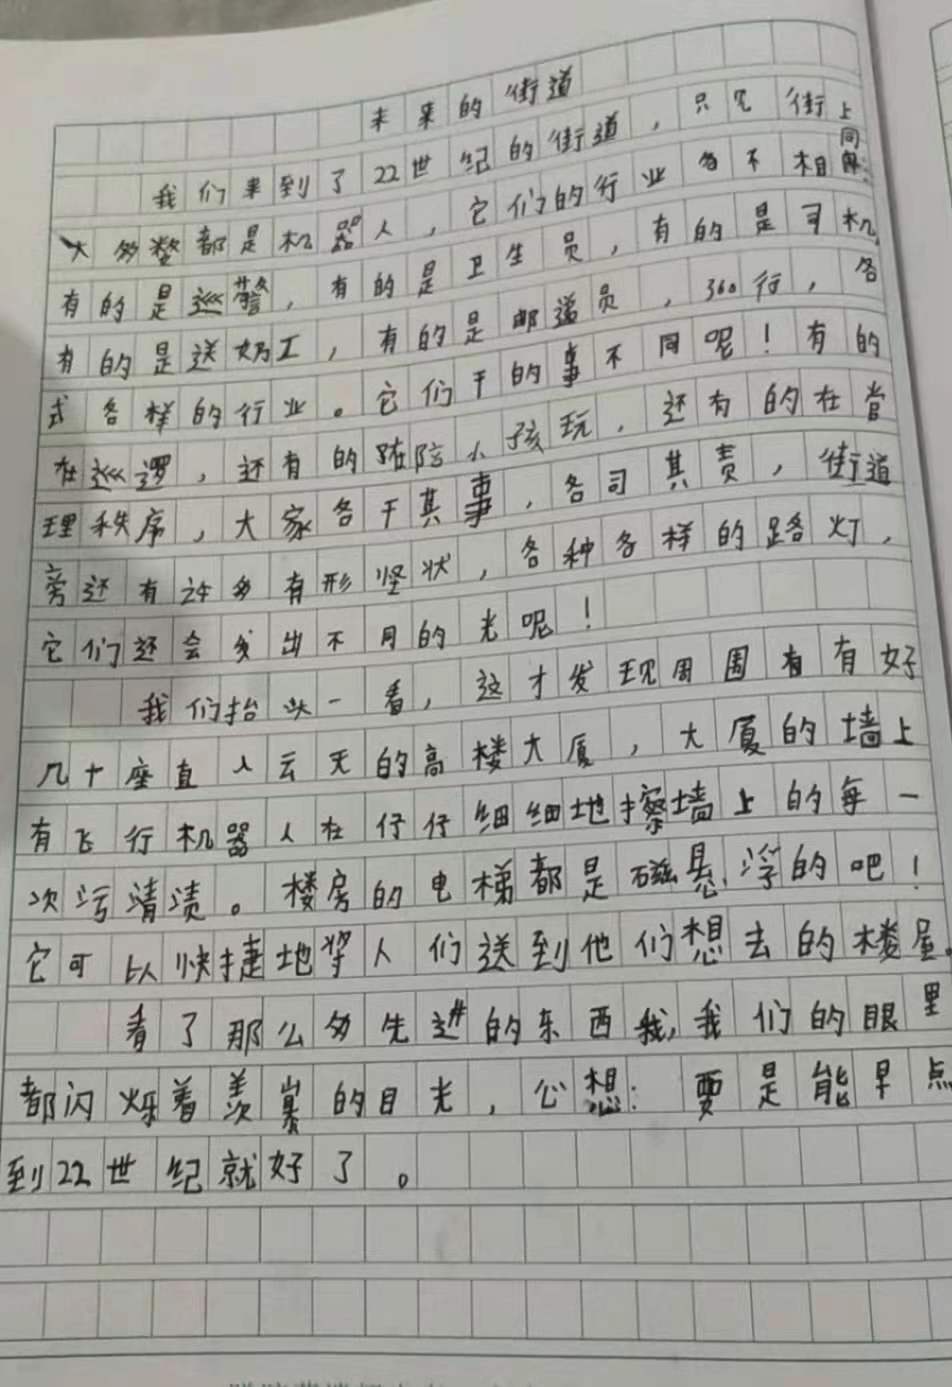 未来的街道
我们来到了22世纪的街道，只见街上
大多数都是机器人，它们的行业各不相同：
有的是巡警，有的是卫生员，有的是司机，
有的是送奶工，有的是邮递员，360行，各
式各样的行业。它们干的事不同呢！有的
在巡逻，还有的陪小孩玩，还有的在管
理秩序，大家各干其事，各司其责，街道
旁还有许多有形坚状，各种各样的路灯，
它们还会发出不同的光呢！
我们抬头一看，这才发现周围有有好
几十座直入云天的高楼大厦，大厦的墙上
有飞行机器人在仔仔细细地擦墙上的每一
次污清渍。楼房的电梯都是磁悬浮的吧！
它可以快捷地将人们送到他们想去的楼层。
看了那么多先进的东西我，我们的眼里
都闪烁着羡慕的目光，心想：要是能早点
到22世纪就好了。